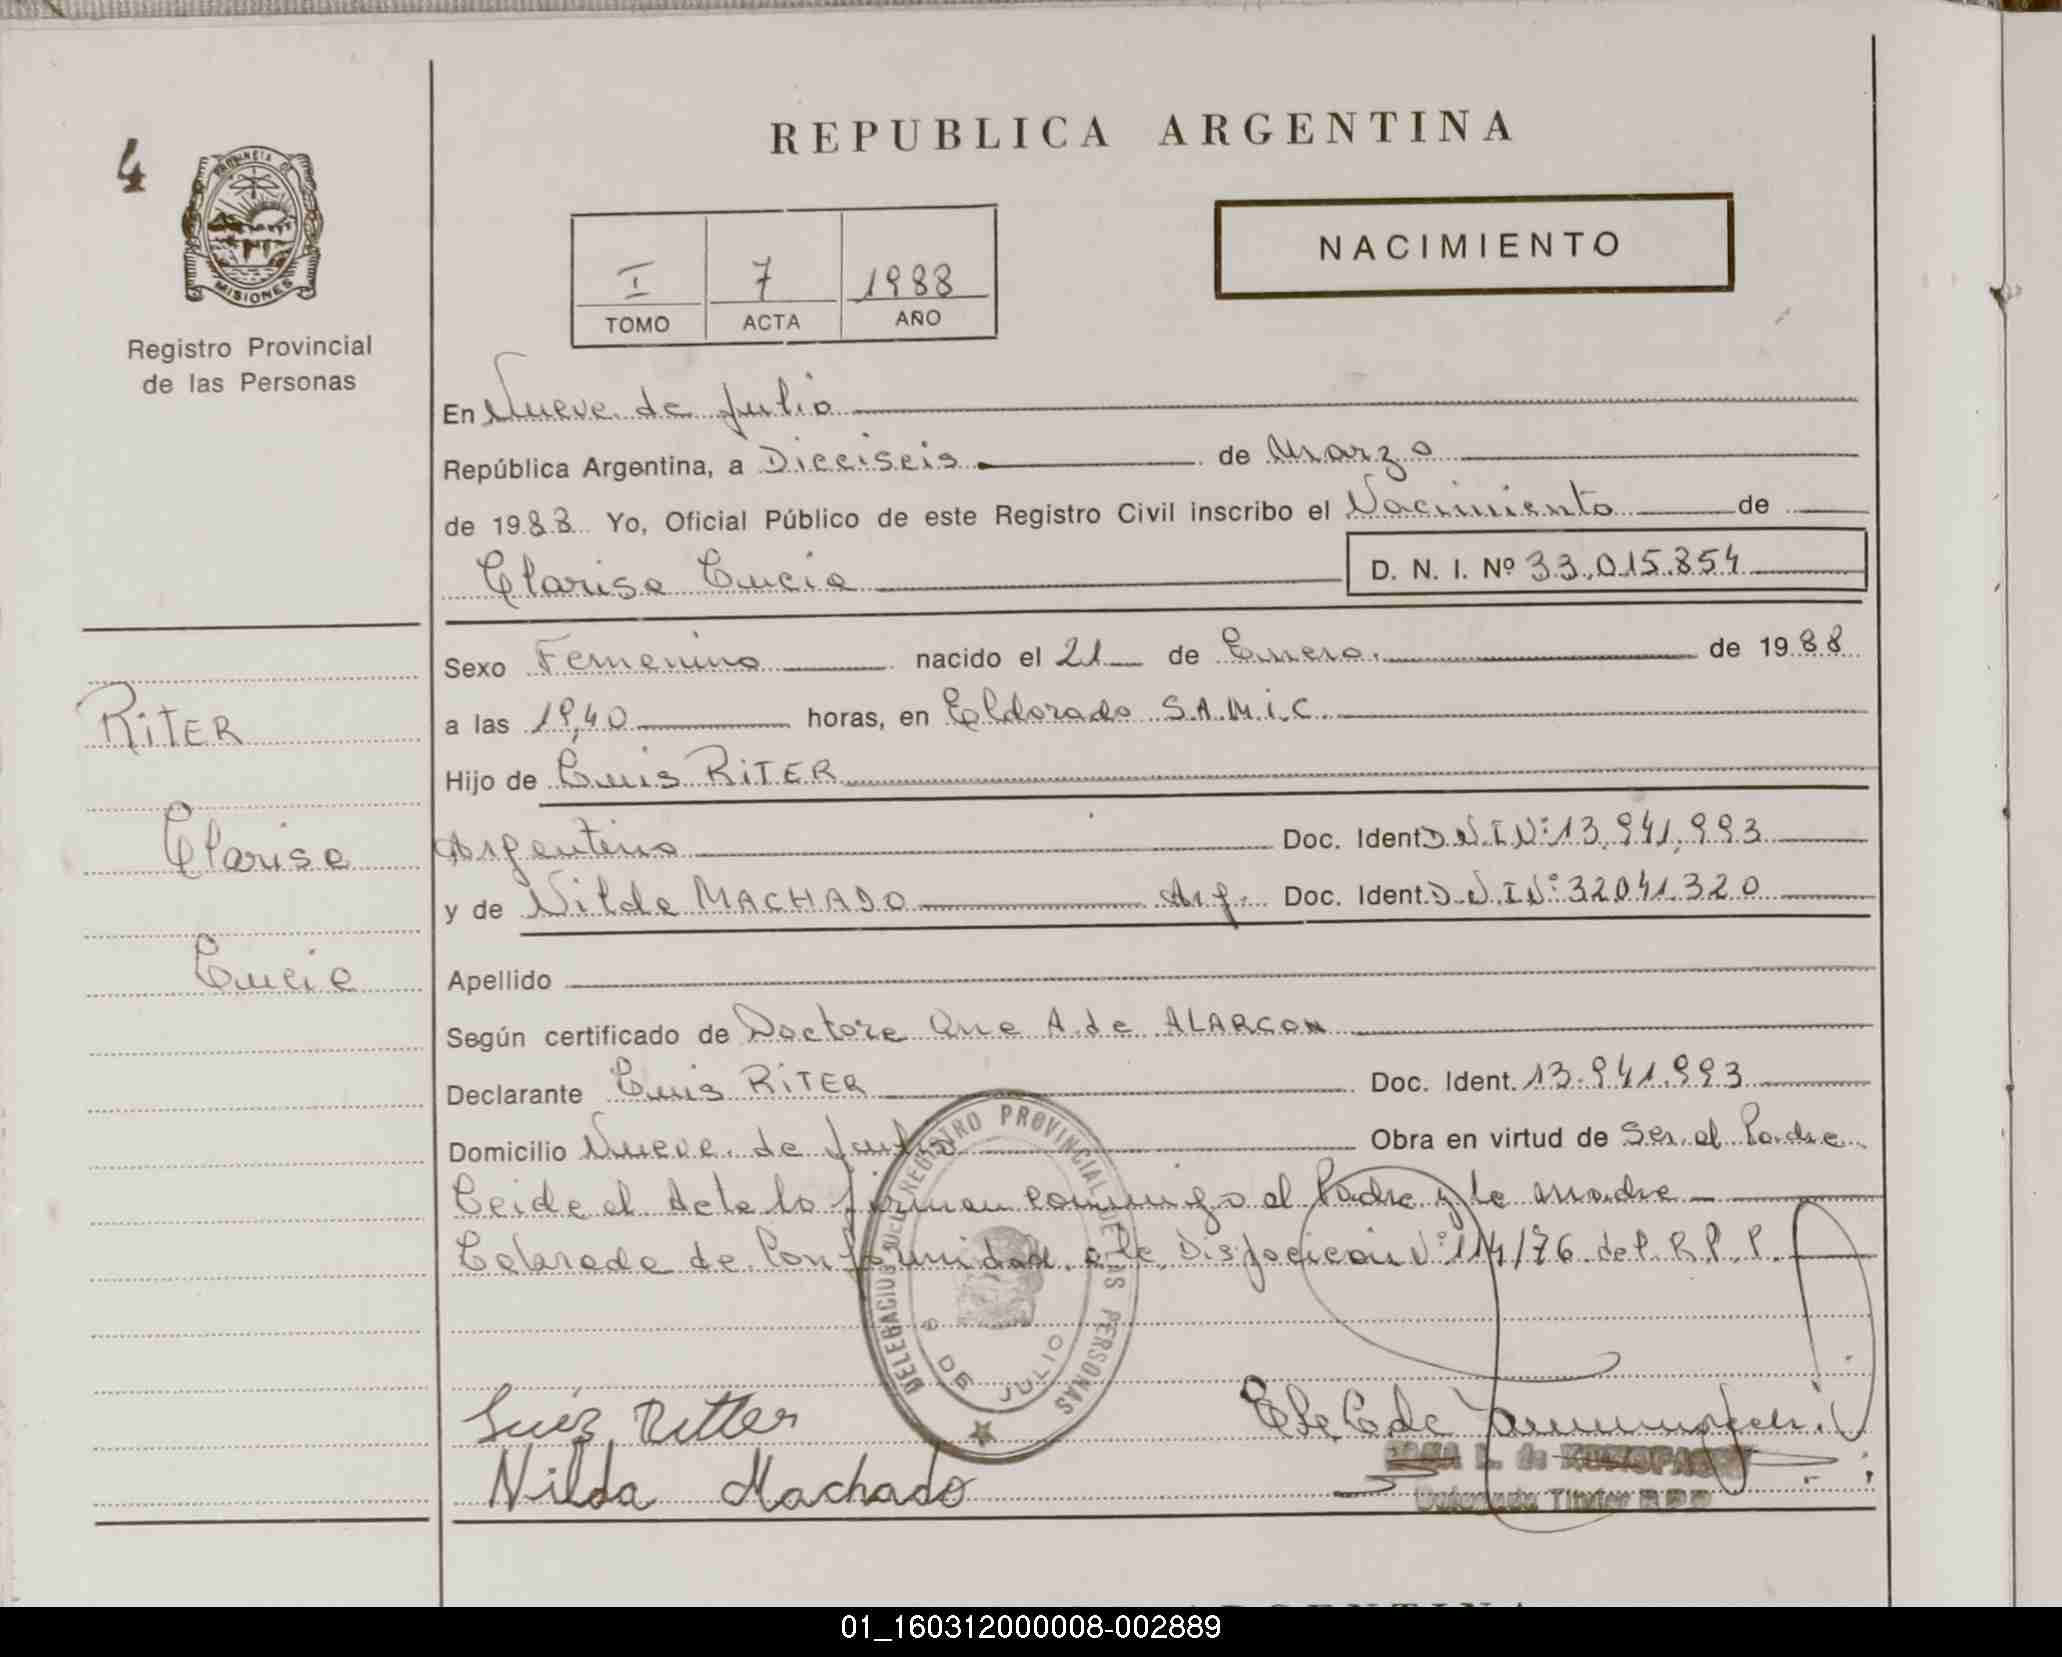 REPUBLICA ARGENTINA
4
PROVINCIA DE
MISIONES
Registro Provincial
de las Personas
NACIMIENTO
I 7 1988
TOMO ACTA AÑO
En Nueve de Julio
República Argentina, a Dieciseis de Marzo
de 1988 Yo, Oficial Público de este Registro Civil inscribo el Nacimiento de
Clarisa Lucia D. N. I. Nº 33.015.854
Sexo Femenino nacido el 21 de Enero. de 1988
a las 19,40 horas, en Eldorado S.A.M.i.C.
Hijo de Luis RiTER
Argentino Doc. Ident. D.N.I Nº: 13.941.993
y de Nilda MACHADO Arg. Doc. Ident. D.N.I Nº: 32041.320
Apellido
Según certificado de Doctora Ana A. de ALARCON
Declarante Luis RiTER Doc. Ident. 13.941.993
Domicilio Nueve de Julio Obra en virtud de Ser el Padre
Leida el Acta la firman conmigo el Padre y la madre
Labrada de Conformidad a la Disposicion Nº 114/76 del R.P.P.
RiTER
Clarisa
Lucia
DELEGACION DEL REGISTRO PROVINCIAL DE LAS PERSONAS
9 DE JULIO
Luis Ritter
Nilda Machado
L. de
Titular R P P
01_160312000008-002889